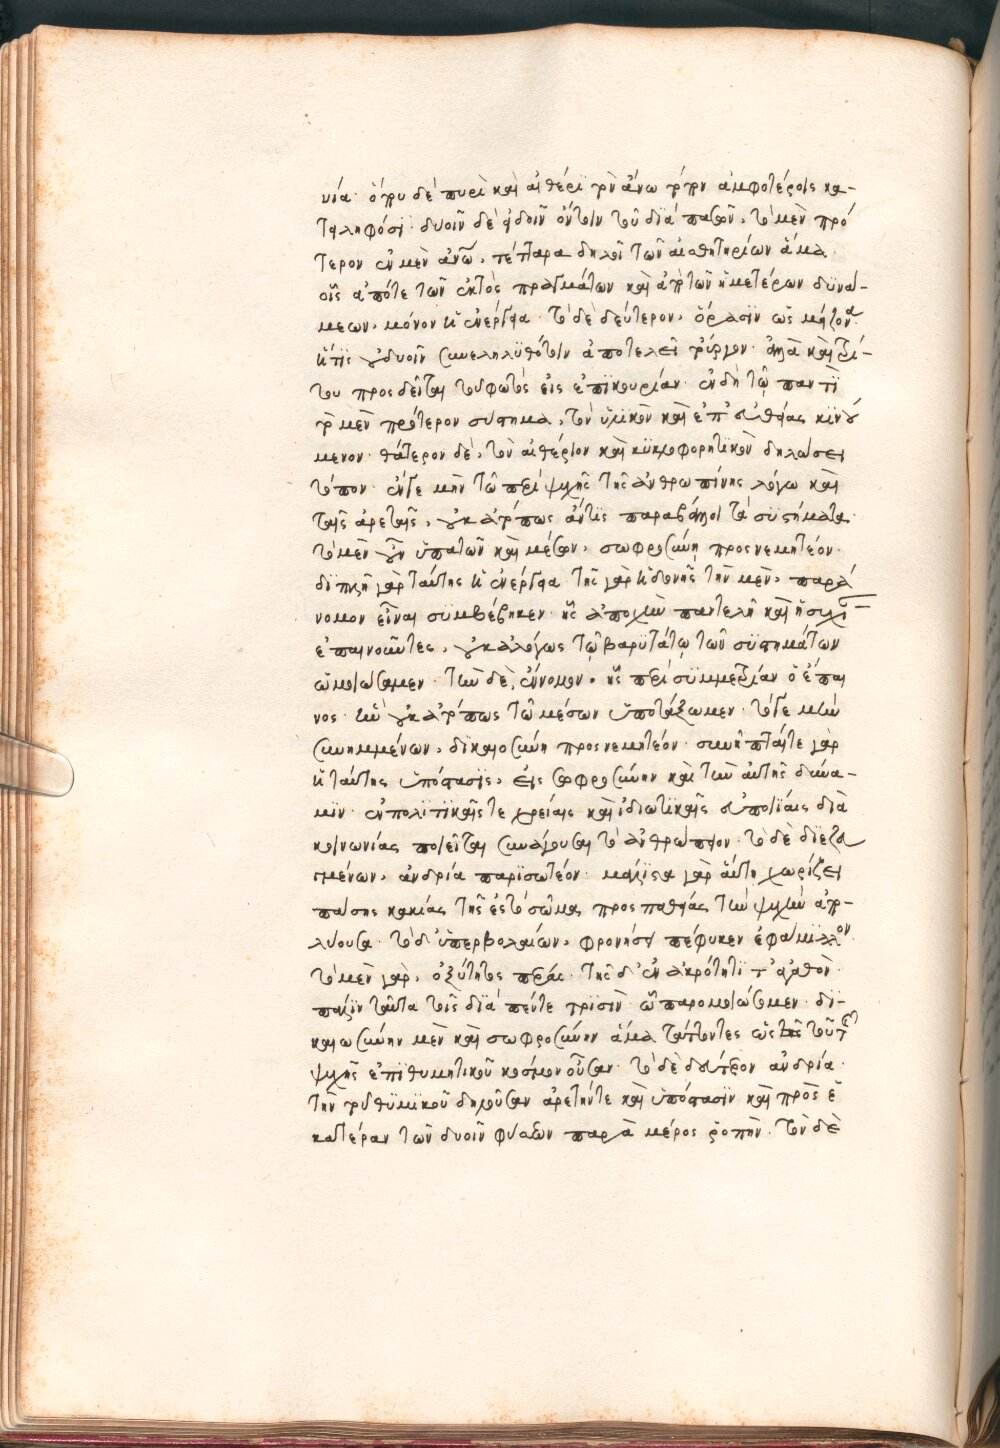 νία· ὅπου δὲ πυρὶ καὶ αἰθέρι τὸν ἄνω τόπον ἀμφοτέροις κα-
τειληφόσι· δυοῖν δὲ εἰδοῖν ὄντοιν τοῦ διὰ πασῶν, τὸ μὲν πρό
τερον ἐν μὲν ἀνῶ, τέτταρα δηλοῖ τῶν αἰσθητηρίων ἅμα
οἷς ἀπότε τῶν ἐκτὸς πραγμάτων καὶ ἀπὸ τῶν ἡμετέρων δυνά-
μεων, μόνον ἡ ἐνέργεια· τὸ δὲ δεύτερον, ὅρασιν ὡς μείζονα
ἥτις οὐ δυοῖν συνεληλυθότοιν ἀποτελεῖ τοὖργον· ἀλλὰ καὶ τρί-
του προσδεῖται τοῦ φωτὸς εἰς ἐπικουρίαν· ἐν δὴ τῷ παντὶ
τὸ μὲν πρότερον σύστημα, τὸν ὑλικὸν καὶ ἐπ' εὐθείας κινού
μενον· θάτερον δὲ, τὸν αἰθέριον καὶ κυκλοφορητικὸν δηλώσει
τόπον· ἐν γε μὴν τῷ περὶ ψυχῆς τῆς ἀνθρωπίνης λόγω καὶ
ταῖς ἀρεταῖς, οὐκ ἀτόπως ἄν τις παραβάλλοι τὰ συστήματα·
τὸ μὲν οὖν ὑπατῶν καὶ μέσων, σωφροσύνῃ προσνεμητέον·
διττὴ γὰρ ταύτης ἡ ἐνέργεια· τῆς γὰρ ἡδονῆς τὴν μὲν, παρά
νομον εἶναι συμβέβηκεν· ἧς ἀποχὴν παντελῆ καὶ ἡσυχίαν
ἐπαινοῦντες, οὐκ ἀλόγως τῷ βαρυτάτῳ τῶν συστημάτων
ὡμοιώσαμεν· τὴν δὲ, ἔννομον, ἧς περὶ συμμετρίαν ὁ ἔπαι
νος· ἣν οὐκ ἀτόπως τῷ μέσων ὑποτάξωμεν· τό γε μὴν
συνημμένων, δικαιοσύνη προσνεμητέον· συνῆπταί τε γὰρ
ἡ ταύτης ὑπόστασις, εἰς σωφροσύνην καὶ τὴν αὐτῆς δύνα-
μιν· ἐν πολιτικαῖς τε χρείαις καὶ ἰδιωτικαῖς εὐποιίαις διὰ
κοινωνίας ποιεῖται συνάγουσα τὸ ἀνθρώπινον· τὸ δὲ διεζευ
γμένων, ἀνδρία παρισωτέον· μάλιστα γὰρ αὕτη χωρίζει
πάσης κακίας τῆς ἐς τὸ σῶμα προσπαθείας τὴν ψυχὴν ἀπο-
λύουσα· τὸ δ' ὑπερβολαίων, φρονήσει πέφυκεν ἐφάμιλλον·
τὸ μὲν γὰρ, ὀξύτητος πέρας· τῆς δ' ἐν ἀκρότητι τ' ἀγαθόν·
πάλιν ταῦτα τοῖς διὰ πέντε τρισὶν· ᾧ παρομοιώσομεν· δι-
καιοσύνην μὲν καὶ σωφροσύνην ἅμα τάττοντες ὡς τῆς τοῦ τῆς
ψυχῆς ἐπιθυμητικοῦ κόσμον οὖσαν· τὸ δὲ δεύτερον ἀνδρία·
τὴν τοῦ θυμικοῦ δηλοῦσαν ἀρετήν τε καὶ ὑπόστασιν καὶ πρὸς ἑ
κατέραν τῶν δυοῖν φύσεων παρὰ μέρος ῥοπὴν· τὸν δὲ